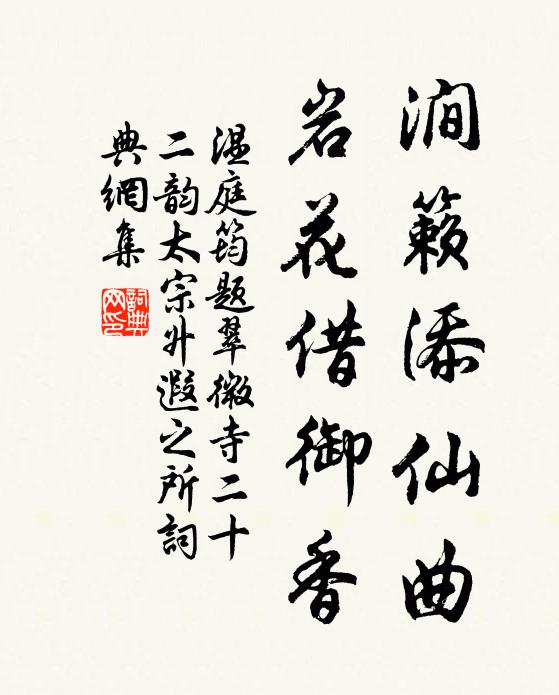 澗籟添仙曲
岩花借御香
温庭筠題翠微寺二十
二韵太宗升遐之所詞
典網集
詞典
网印